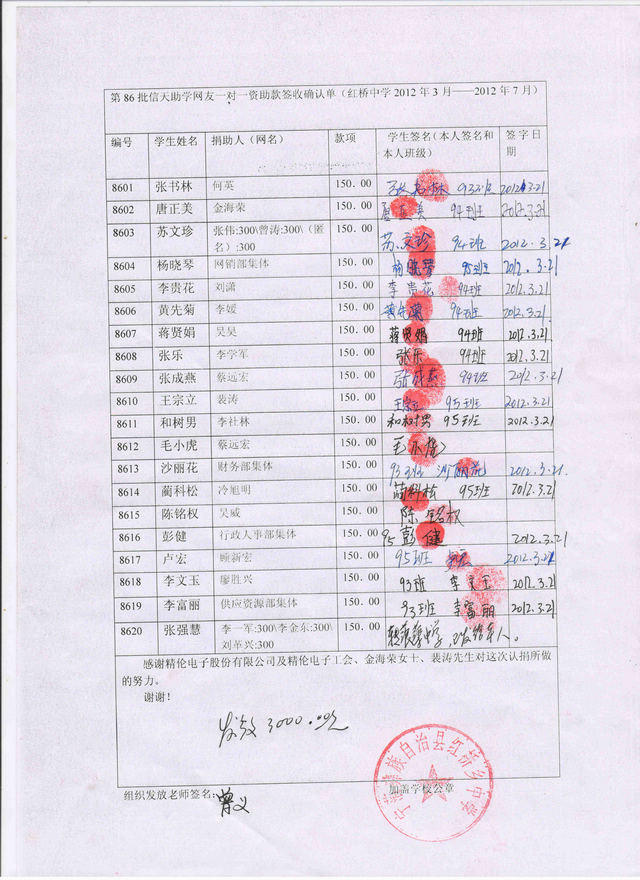 第86批信天助学网友一对一资助款签收确认单（红桥中学2012年3月——2012年7月）
编号 学生姓名 捐助人（网名） 款项 学生签名（本人签名和本人班级） 签字日期
8601 张书林 何英 150.00 张书林 2012.3.21
8602 唐正美 金海荣 150.00 唐正美 94班 2012.3.21
8603 苏文珍 张伟:300\曾涛:300\(匿名):300 150.00 苏文珍 94班 2012.3.21
8604 杨晓琴 网销部集体 150.00 杨晓琴 95班 2012.3.21
8605 李贵花 刘潇 150.00 李贵花 94班 2012.3.21
8606 黄先菊 李媛 150.00 黄先菊 94班 2012.3.21
8607 蒋贤娟 吴昊 150.00 蒋贤娟 94班 2012.3.21
8608 张乐 李学军 150.00 张乐 94班 2012.3.21
8609 张成燕 蔡远宏 150.00 张成燕 94班 2012.3.21
8610 王宗立 裴涛 150.00 王宗立 95班 2012.3.21
8611 和树男 李社林 150.00 和树男 95班 2012.3.21
8612 毛小虎 蔡远宏 150.00 毛小虎
8613 沙丽花 财务部集体 150.00 93班 沙丽花 2012.3.21
8614 蔺科松 冷旭明 150.00 蔺科松 95班 2012.3.21
8615 陈铭权 吴威 150.00 陈铭权
8616 彭健 行政人事部集体 150.00 95 彭健 2012.3.21
8617 卢宏 顾新宏 150.00 95班 2012.3.21
8618 李文玉 廖胜兴 150.00 93班 李文玉 2012.3.21
8619 李富丽 供应资源部集体 150.00 93班 李富丽 2012.3.21
8620 张强慧 李一军:300\李金东:300\刘革兴:300 150.00
感谢精伦电子股份有限公司及精伦电子工会、金海荣女士、裴涛先生对这次认捐所做
的努力。
谢谢！
发放3000.00元
组织发放老师签名：曾义 加盖学校公章
族自治县红桥乡中学